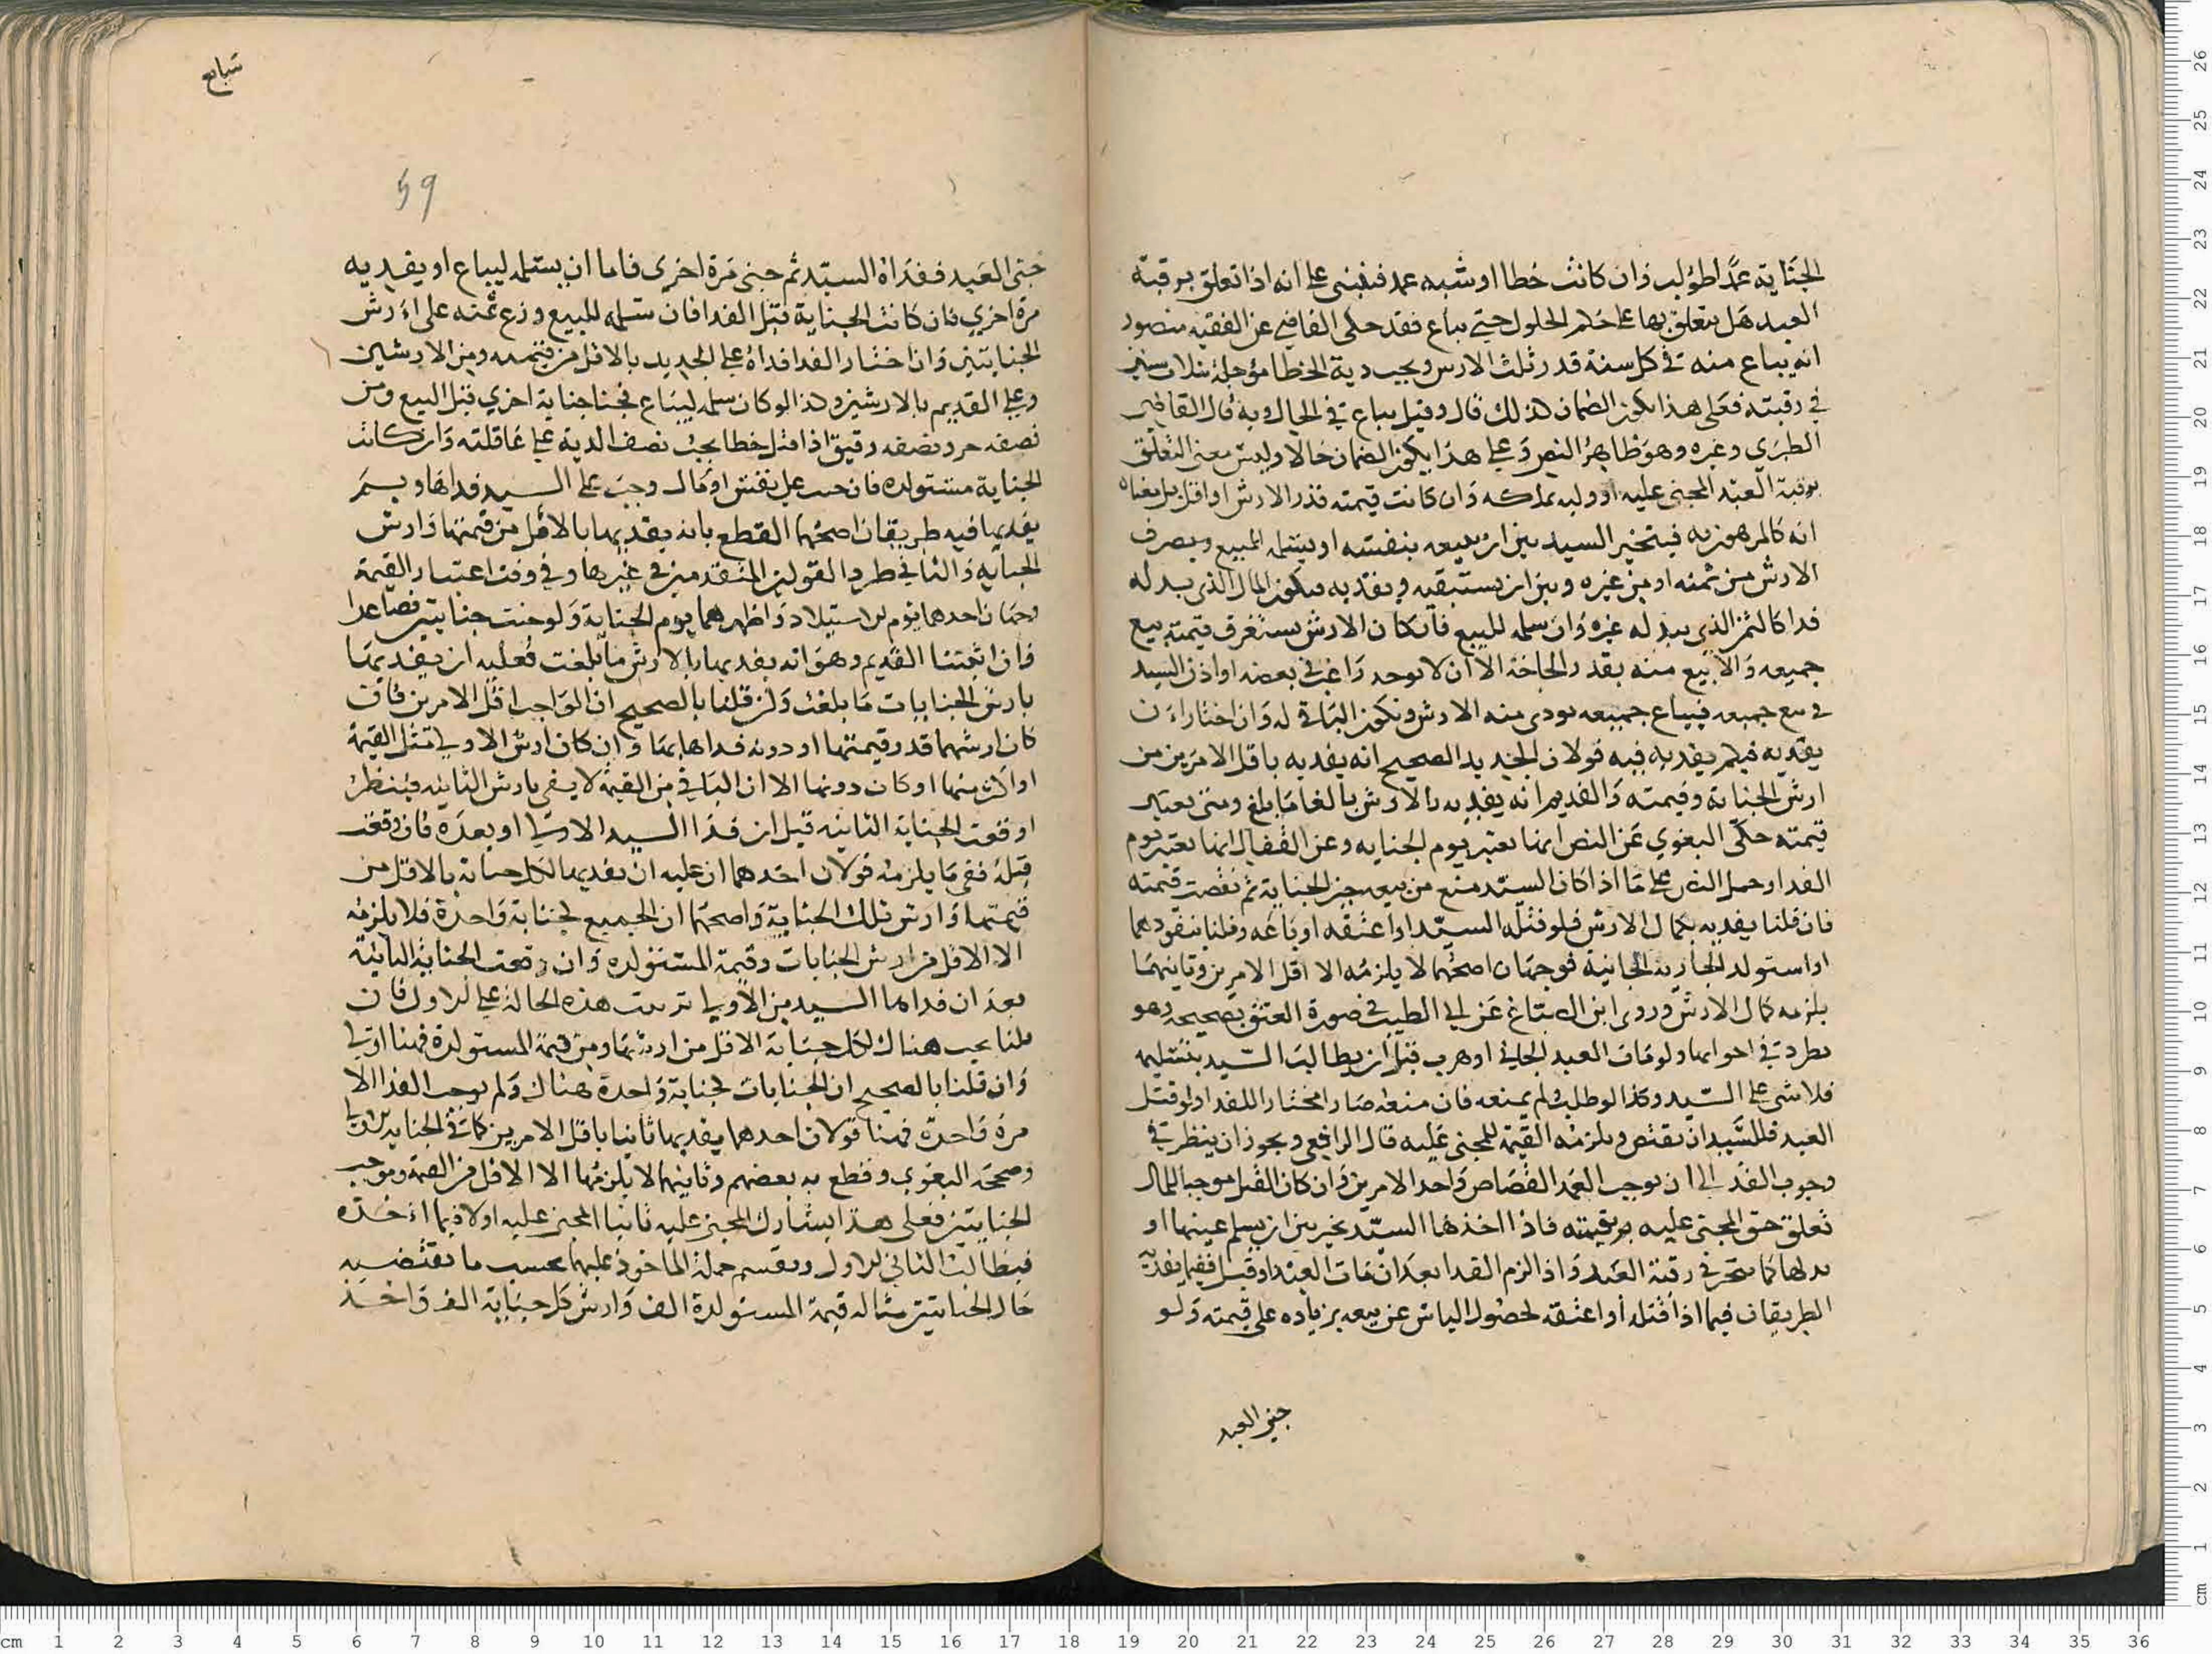 الجناية عمدا طولب وان كانت خطا او شبه عمد فينبني على انه اذا تعلق برقبة
العبد هل يتعلق بها على حكم الحلول حتى يباع فقد حكى القاضي عن الفقيه منصور
انه يباع منه في كل سنة قدر ثلث الارش ويجب دية الخطا مؤجلة بثلاث سنين
في رقبته فعلى هذا يكون الضمان كذلك قال وقيل يباع في الحال وبه قال القاضي
الطبري وغيره وهو ظاهر النص وعلى هذا يكون الضمان حالا وليس معنى التعلق
برقبة العبد المجني عليه او وليه يملكه وان كانت قيمته قدر الارش او اقل بل معناه
انه كالمرهون به فيتخير السيد بين ان يبيعه بنفسه او يسلمه للبيع ويصرف
الارش من ثمنه او من غيره وبين ان يستبقيه ويفديه فيكون المال الذي يبدله
فدا كالثمن الذي يبدله غيره وان سلمه للبيع فان كان الارش يستغرق قيمته بيع
جميعه والا بيع منه بقدر الحاجة الا ان لا يوجد راغب في بعضه او اذن السيد
في بيع جميعه فيباع جميعه يودى منه الارش ويكون الباقي له وان اختار ان
يفديه فبكم يفديه فيه قولان الجديد الصحيح انه يفديه باقل الامرين من
ارش الجناية وقيمته والقديم انه يفديه بالارش بالغا ما بلغ ومتى يعتبر
قيمته حكى البغوي عن النص انها تعتبر يوم الجناية وعن القفال انها تعتبر يوم
الفدا وحمل النص على ما اذا كان السيد منع من بيعه حين الجناية ثم نقصت قيمته
فان قلنا يفديه بكمال الارش فلو قتله السيد او اعتقه او باعه وقلنا بنفوذهما
او استولد الجارية الجانية فوجهان اصحهما لا يلزمه الا اقل الامرين وثانيهما
يلزمه كمال الارش وروى ابن الصباغ عن ابي الطيب في صورة العتق تصحيحه وهو
يطرد في اخواتها ولو مات العبد الجاني او هرب قبل ان يطالب السيد بتسليمه
فلا شي على السيد وكذا لو طلب ولم يمنعه فان منعه صار مختارا للفدا ولو قتل
العبد فللسيد ان يقتص ويلزمه القيمة للمجني عليه قال الرافعي ويجوز ان ينظر في
وجوب الفدا الى ان موجب العمد القصاص او احد الامرين وان كان القتل موجبا للمال
تعلق حق المجني عليه بقيمته فاذا اخذها السيد تخير بين ان يسلم عينها او
بدلها كما يتخير في رقبة العبد واذا الزم الفدا بعد ان مات العبد او قتل ففيما يفديه
الطريقان فيما اذا قتله او اعتقه لحصول الياس عن بيعه بزيادة على قيمته ولو
جنى العبد
شبابع
59
جنى العبد ففداه السيد ثم جنى مرة اخرى فاما ان يسلمه ليباع او يفديه
مرة اخرى فان كانت الجناية قبل الفدا فان سلمه للبيع وزع ثمنه على ارش
الجنايتين وان اختار الفدا فداه على الجديد بالاقل من قيمته ومن الارشين
وعلى القديم بالارشين وكذا لو كان سلمه ليباع فجنا جناية اخرى قبل البيع ومن
نصفه حر ونصفه رقيق اذا قتل خطا يجب نصف الدية على عاقلته وان كانت
الجناية مستولدة فان جنت على نفس او مال وجب على السيد فداها وبم
يفديها فيه طريقان اصحهما القطع بانه يفديها بالاقل من قيمتها وارش
الجناية والثاني طرد القولين المتقدمين في غيرها وفي وقت اعتبار القيمة
وجهان احدهما يوم الاستيلاد واظهرهما يوم الجناية ولو جنت جنايتين فصاعدا
فان اثبتنا القديم وهو انه يفديها بالارش ما بلغت فعليه ان يفديها
بارش الجنايات ما بلغت وان قلنا بالصحيح ان الواجب اقل الامرين فان
كان ارشهما قدر قيمتها او دونه فداها بهما وان كان ارش الاولى مثل القيمة
او اكثر منها او كان دونها الا ان الباقي من القيمة لا يفي بارش الثانية فينظر
اوقعت الجناية الثانية قبل ان فدا السيد الاولى او بعده فان وقعت
قبله ففي ما يلزمه قولان احدهما ان عليه ان يفديها لكل جناية بالاقل من
قيمتها وارش تلك الجناية واصحهما ان الجميع كجناية واحدة فلا يلزمه
الا الاقل من ارش الجنايات وقيمة المستولدة وان وقعت الجناية الثانية
بعد ان فداها السيد من الاولى ترتبت هذه الحالة على الاول فان
قلنا يجب هناك لكل جناية الاقل من ارشها ومن قيمة المستولدة فهنا اولى
وان قلنا بالصحيح ان الجنايات كجناية واحدة هناك ولم يوجب الفدا الا
مرة واحدة فهنا قولان احدهما يفديها ثانيا باقل الامرين كما في الجناية الاولى
وصححه البغوي وقطع به بعضهم وثانيهما لا يلزمها الا الاقل من القيمة وموجب
الجنايتين فعلى هذا يشارك المجني عليه ثانيا المجني عليه اولا فيما اخذه
فيطالب الثاني الاول ويقسم جملة الماخوذ عليهما بحسب ما تقتضيه
حال الجنايتين مثاله قيمة المستولدة الف وارش كل جناية الف واخذ